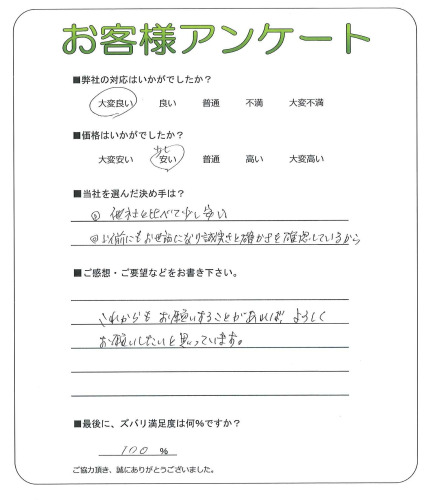 お客様アンケート
■弊社の対応はいかがでしたか？
大変良い 良い 普通 不満 大変不満
■価格はいかがでしたか？
少し
大変安い 安い 普通 高い 大変高い
■当社を選んだ決め手は？
◎ 他社と比べて少し安い
◎以前にもお世話になり誠実さと確かさを確認しているから
■ご感想・ご要望などをお書き下さい。
これからもお願いすることがあれば、よろしく
お願いしたいと思っています。
■最後に、ズバリ満足度は何%ですか？
100 %
ご協力頂き、誠にありがとうございました。